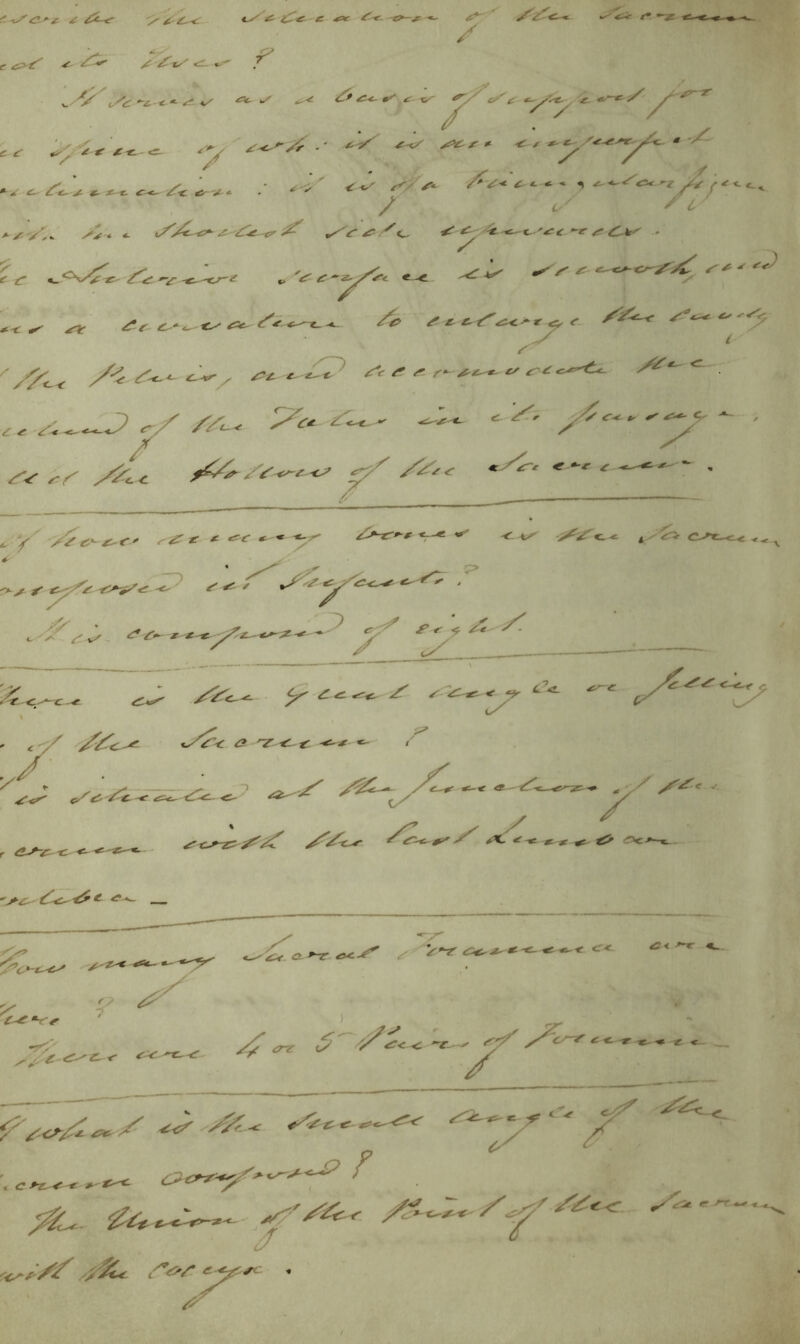 the Situation of the Sacrum
its Uses ?
It serves as a basis of support for
Spine of : it is an imperfect
: it is of a triangular figure
Shortest side upwards .
Interior surface is smooth, and
a to enlarge the Cavity
the Pelvis, and accommodate the
of the Fœtus in its passage ,
the Hollow of the Sacrum .
Of how many bones is the Sacrum
in Infants ?
It is composed of eight .
is the great angle or jetting
of the Sacrum ?
is situated at the Junction of the
with the last Lumbar
_
How many Sacral Foramina are
There are 4 or 5 Pairs of Foramina
Of what is the small angle of the
composed ?
The Union of the Point of the Sacrum
with the coccyx .